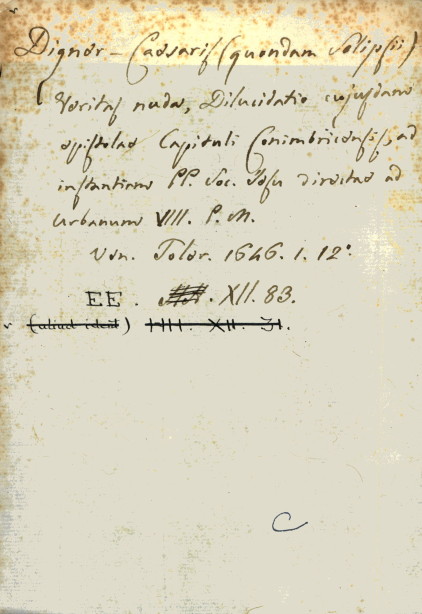 Dignor – Caesaris (quondam Solipsii)
Veritas nuda, Dilucidatio cujusdam
epistolae Capituli Conimbricensis, ad
instantiam PP. Soc. Jesu directae ad
Urbanum VIII. P. M.
Ven. Tolor. 1646. 1. 12°.
EE. XII. 83.
(aliud idem) IIII. XII. 31.
C